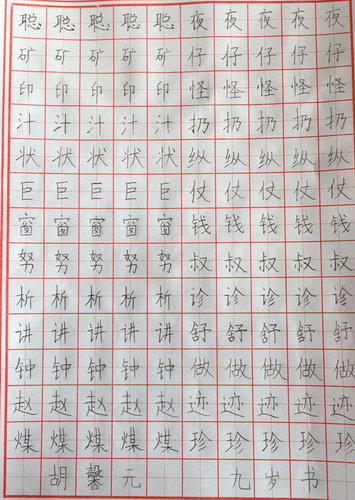 聪聪聪聪聪夜夜夜夜夜
矿矿矿矿矿仔仔仔仔仔
印印印印印怪怪怪怪怪
汁汁汁汁汁扔扔扔扔扔
状状状状状纵纵纵纵纵
巨巨巨巨巨仗仗仗仗仗
窗窗窗窗窗钱钱钱钱钱
努努努努努叔叔叔叔叔
析析析析析诊诊诊诊诊
讲讲讲讲讲舒舒舒舒舒
钟钟钟钟钟做做做做做
赵赵赵赵赵迹迹迹迹迹
煤煤煤煤煤珍珍珍珍珍
胡馨元 九岁书